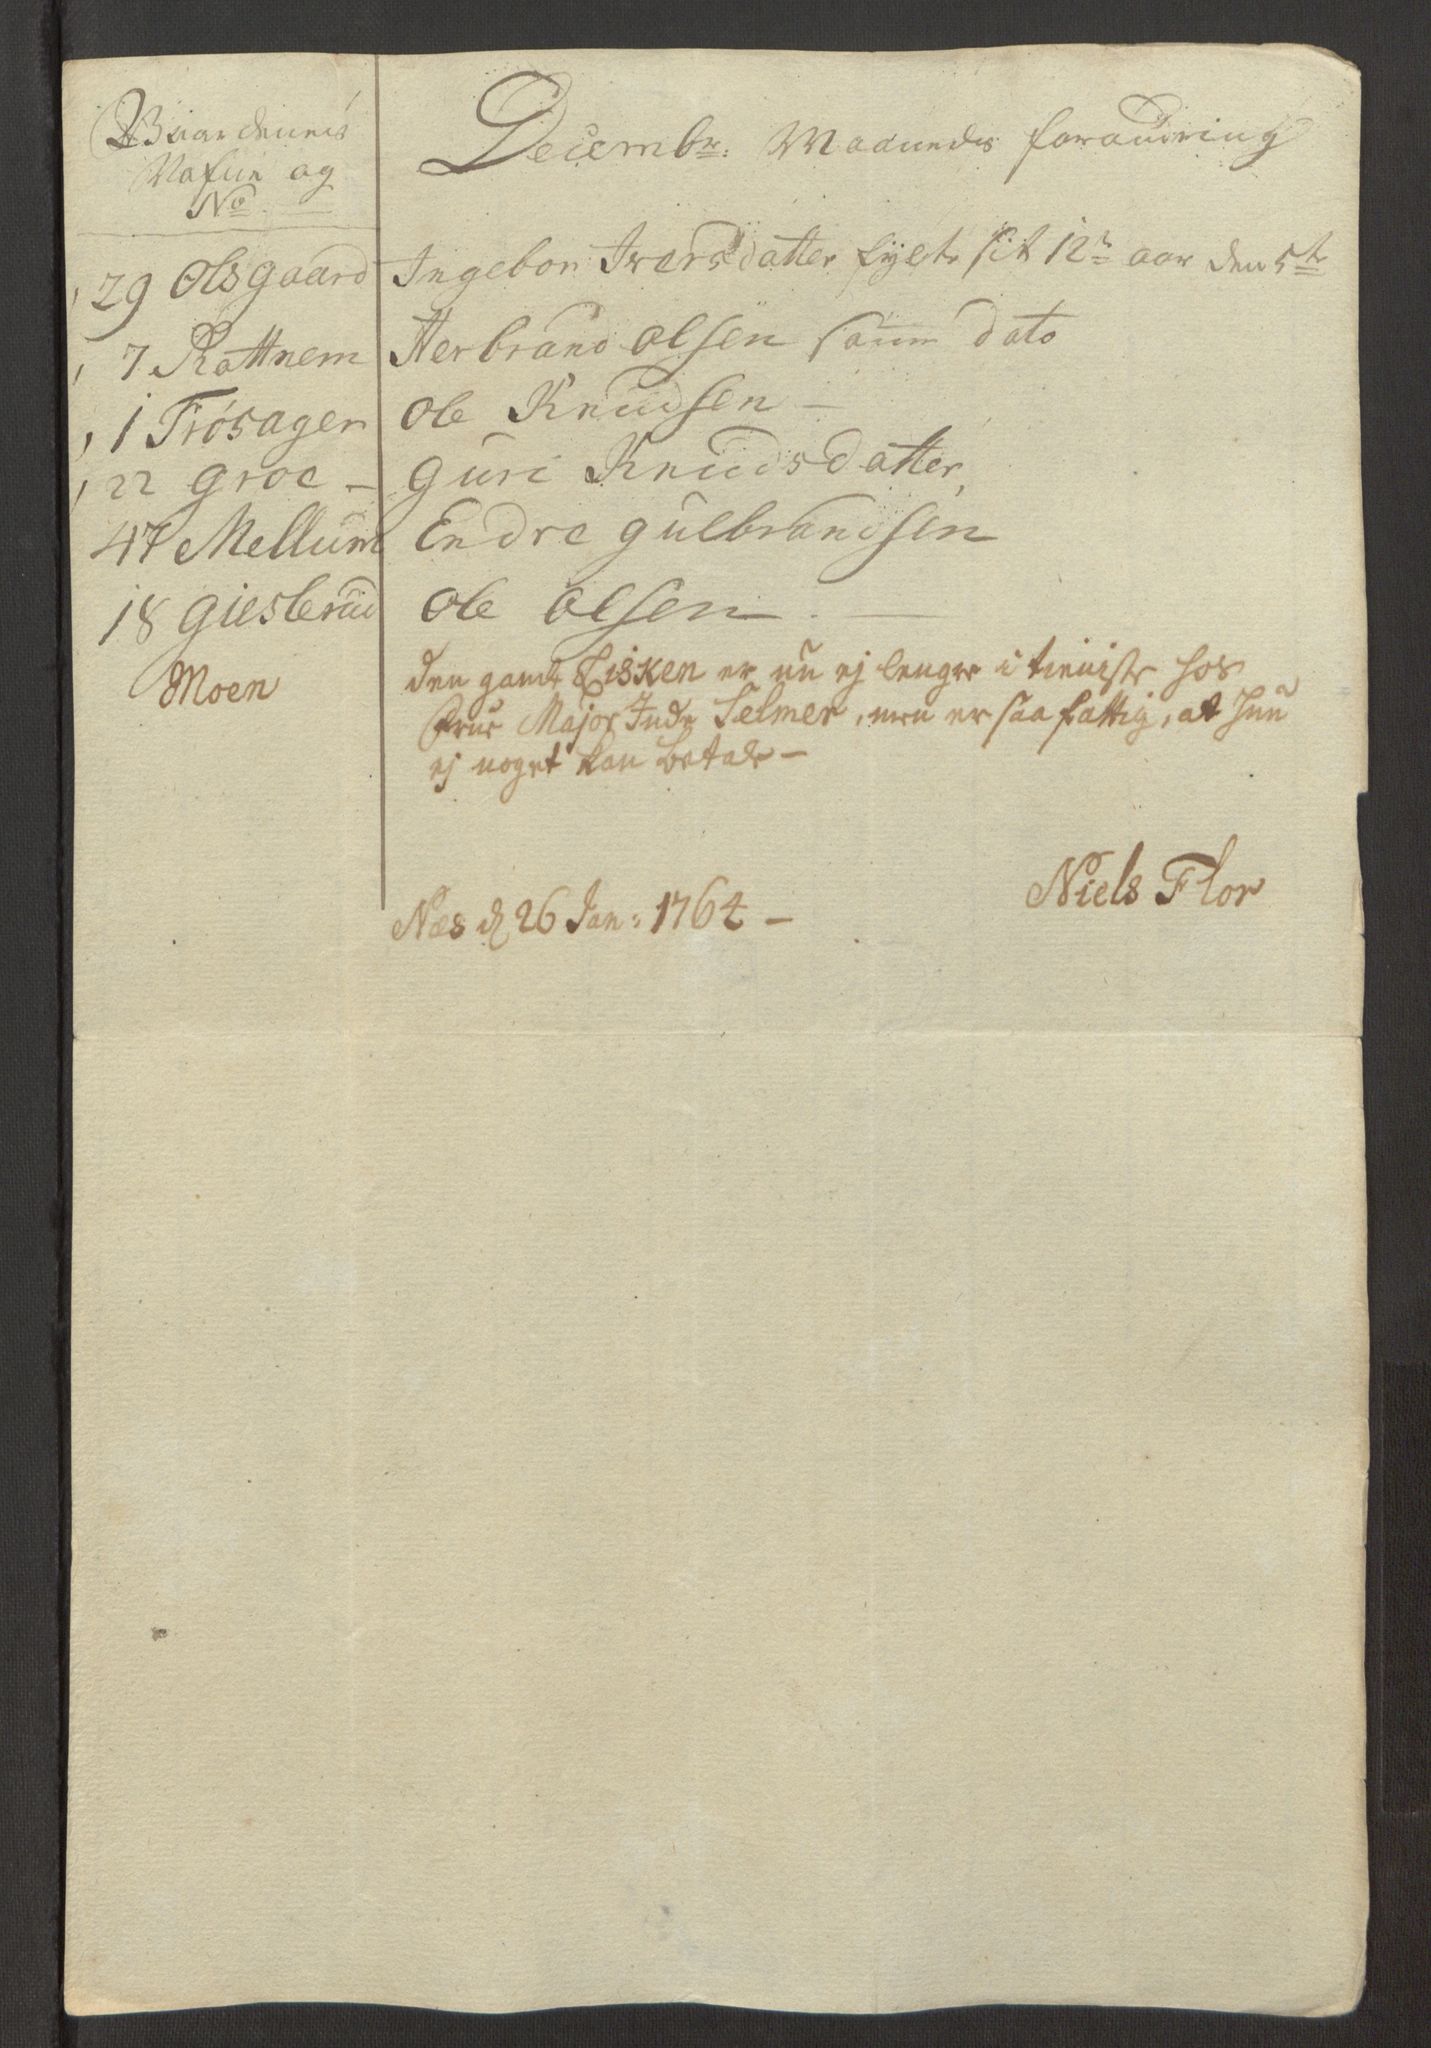 Gaardenes
Nafne og
No
Decembr: Maaneds forandring
29 Olsgaard Ingebor Iversdatter fylte sit 12te aar den 5te
7 Rottnem Herbrand Olsen samme dato
1 Trøsager Ole Knudsen –
22 Groe – Guri Knudsdatter,
47 Mellum Endre Gulbrandsen
18 Giesbraa Ole Olsen . —
Moen den gamle Lisken er nu ej lenger i tieniste hos
Frue Major Inde Selmer, men er saa fattig, at hun
ej noget kan betale –
Niels Flor
Næs d 26 Jan: 1764 –